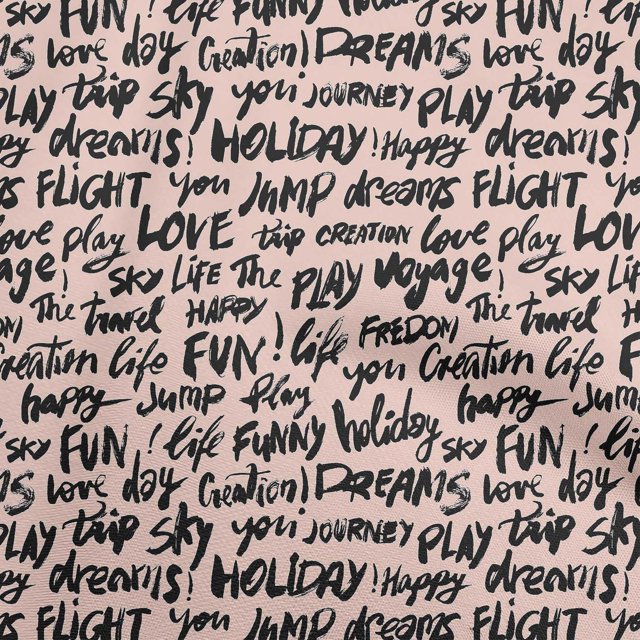 sky FUN ! life FUNNY holiday sky FUN ! life
love day Creation! DREAMS love day
PLAY trip sky you JOURNEY PLAY trip sky
dreams! HOLIDAY! Happy dreams!
FLIGHT you JUMP dreams FLIGHT you
love play LOVE trip CREATION love play LOVE
! sky LIFE The PLAY voyage! sky LIFE
The travel HAPPY FREDOM The travel
Creation life FUN! life you Creation life
happy Jump Play happy Jump
sky FUN ! life FUNNY holiday sky FUN ! life
love day Creation! DREAMS love day
PLAY trip sky you JOURNEY PLAY trip sky
dreams! HOLIDAY! Happy dreams!
FLIGHT you JUMP dreams FLIGHT you